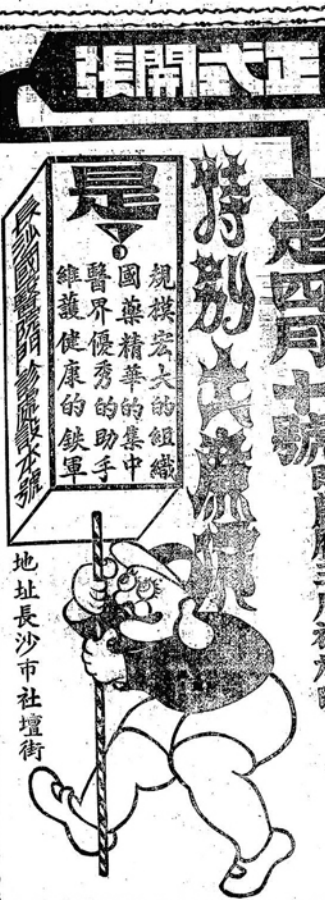 正式開張
定四月十號
特別大廉
是
規模宏大的組織
國藥精華的集中
醫界優秀的助手
維護健康的鉄軍
長沙國醫院門診處設本號
地址長沙市社壇街